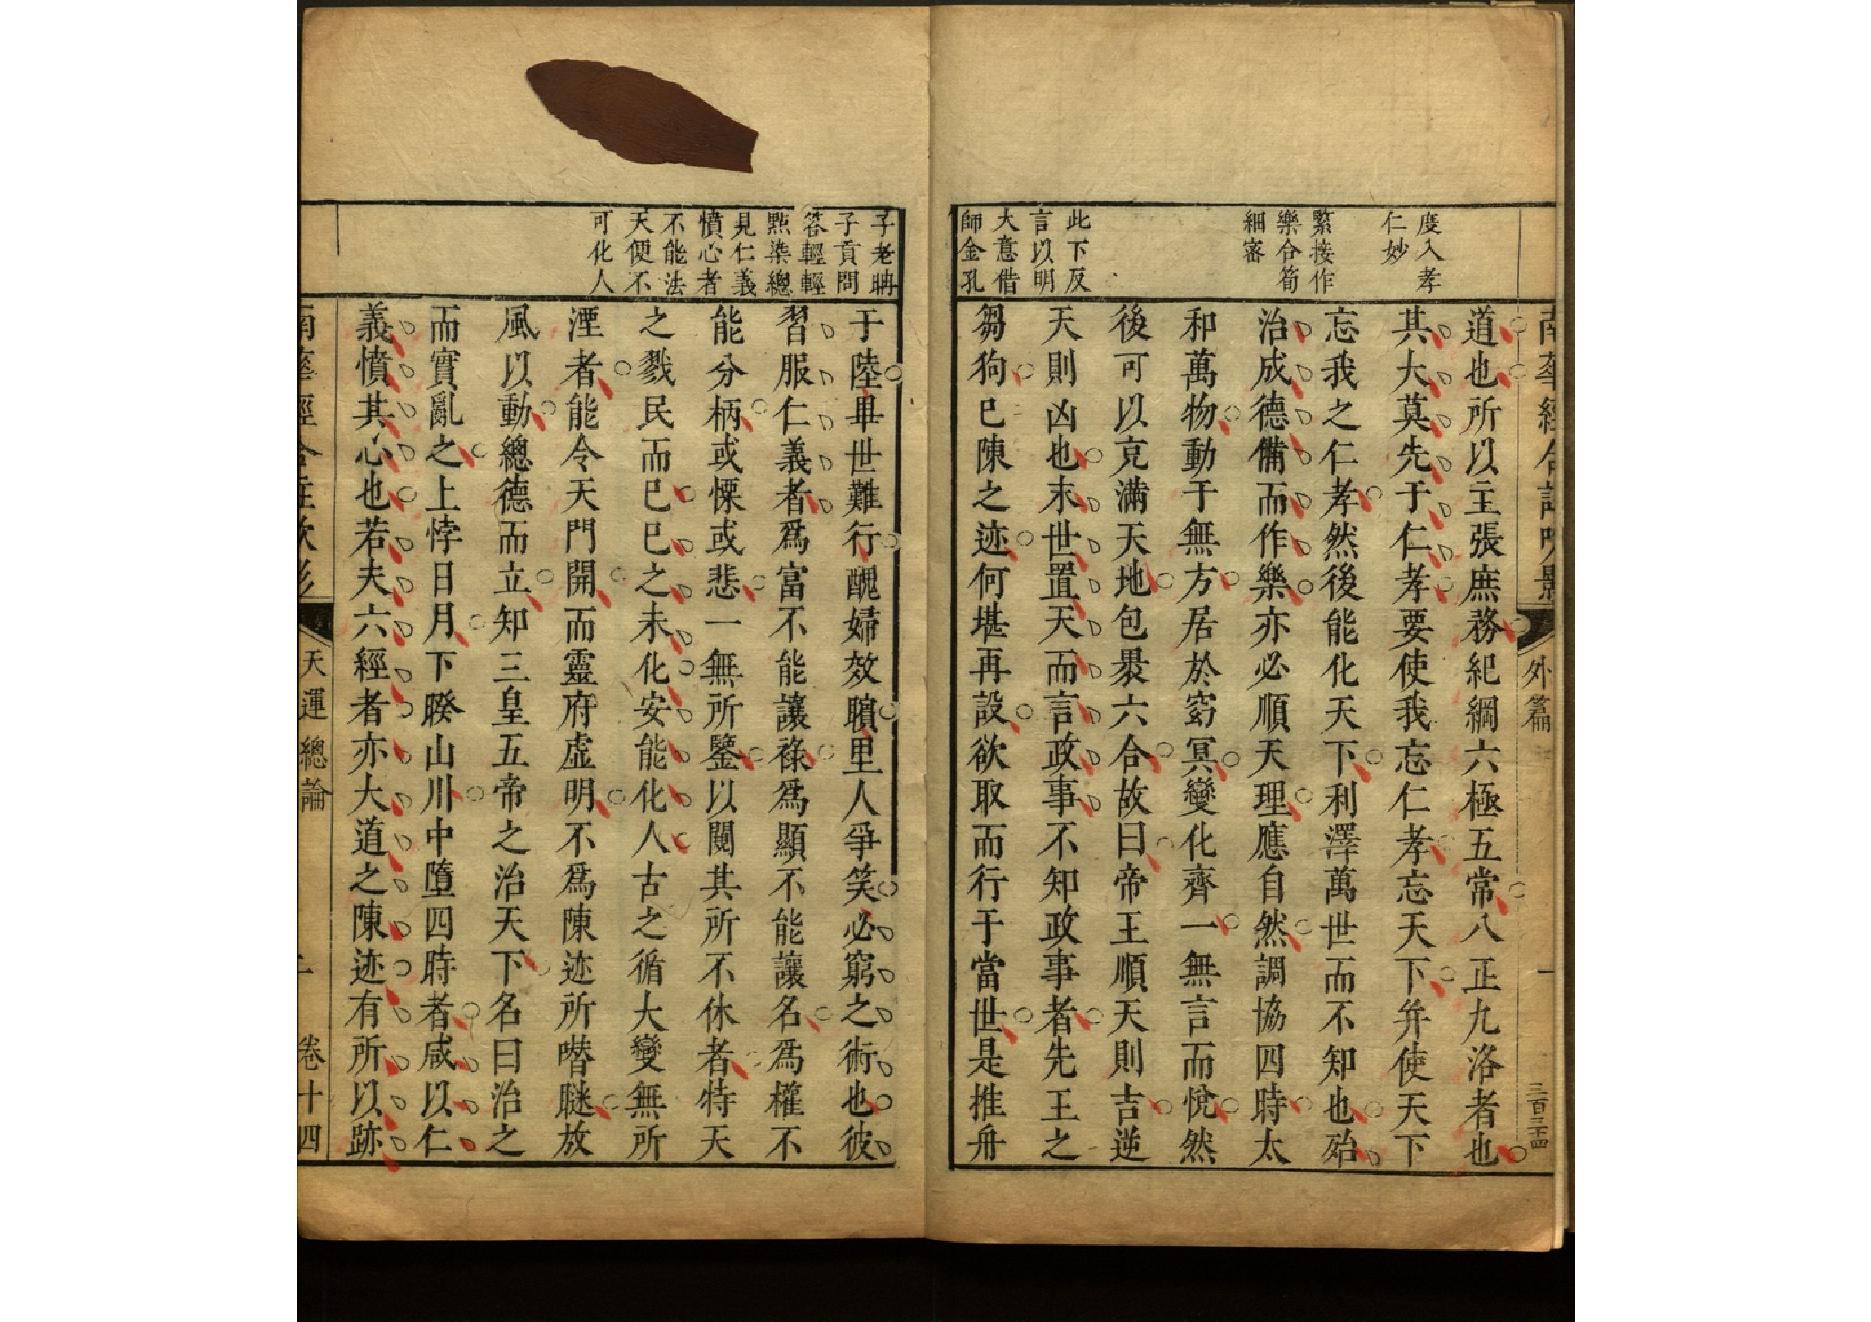 南華經合註吹影
外篇
三百三十四
度入孝
仁妙
緊接作
樂合筍
細審
此下反
言以明
大意借
師金孔
道也所以主張庶務紀綱六極五常八正九洛者也
其大莫先于仁孝要使我忘仁孝忘天下并使天下
忘我之仁孝然後能化天下利澤萬世而不知也殆
治成德備而作樂亦必順天理應自然調協四時太
和萬物動于無方居於窈冥變化齊一無言而悅然
後可以充滿天地包裹六合故曰帝王順天則吉逆
天則凶也末世置天而言政事不知政事者先王之
芻狗已陳之迹何堪再設欲取而行于當世是推舟
子老聃
子貢問
答輕輕
點染總
見仁義
憤心者
不能法
天便不
可化人
于陸畢世難行醜婦效顰里人爭笑必窮之術也彼
習服仁義者爲富不能讓祿爲顯不能讓名爲權不
能分柄或慄或悲一無所鑒以闚其所不休者特天
之戮民而已已之未化安能化人古之循大變無所
湮者能令天門開而靈府虛明不爲陳迹所㗳䐅放
風以動總德而立知三皇五帝之治天下名曰治之
而實亂之上悖日月下睽山川中墮四時者咸以仁
義憤其心也若夫六經者亦大道之陳迹有所以跡
南華經合註吹影
天運總論
卷十四